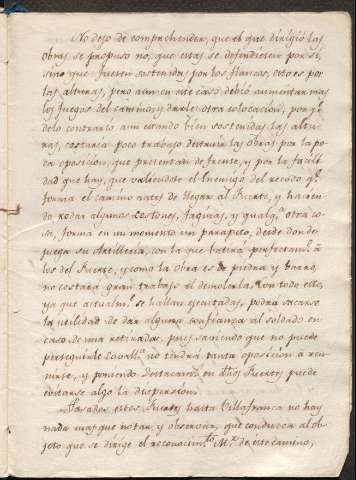 No dejo de comprehender, que el que dirigió las
obras se propuso no, que estas se defendiesen por sí,
sino que fuesen sostenidas por los flancos, esto es por
las alturas, pero aun en este caso debió aumentar mas
los fuegos del camino, y darle otra colocacion, porqe.
de lo contrario aun estando bien sostenidas las altu-
ras, costaria poco trabajo destruir las obras por la po-
ca oposicion, que presentan de frente, y por la facili-
dad que hay, que valiendose el Enemigo del recodo qe.
forma el camino antes de llegar al Fuerte, y hacien-
do rodar algunos Cestones, faginas, y qualqa. otra co-
sa, forma en un momento un parapeto, desde donde
juega su Artilleria, con la que batirá perfectamte. á
los del Fuerte, y como la obra es de piedra y barro,
no costará gran trabajo el demolerla. Con todo ello,
ya que actualmte. se hallan ejecutadas, podra sacarse
la utilidad de dar alguna confianza al soldado en
caso de una retirada, pues sabiendo que no puede
perseguirle Cavallª. no tendrá tanta oposicion a reu-
nirse, y poniendo Destacamtos. en dhos Fuertes puede
evitarse algo la dispersion.
Pasados estos Fuertes hasta Villafranca no hay
nada mas que notar, y observar, que conduzca al ob-
jeto que se dirige el reconocimto. Mr. de este camino,